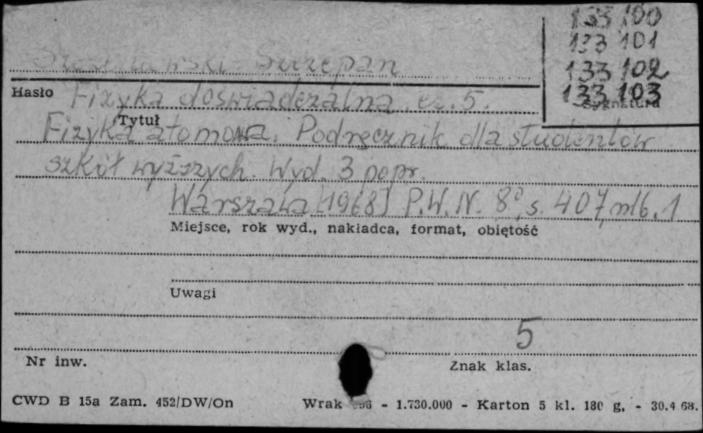 133 100
133 101
133 102
133 103
Szczepan
Hasło
sygnatura
Fizyka doświadczalna. cz. 5.
Tytuł
Fizyka atomowa. Podręcznik dla studentów
szkół wyższych. Wyd. 3 popr.
Warszawa [1968] P.W.N. 8°, s. 407, nlb. 1
Miejsce, rok wyd., nakładca, format, objętość
Uwagi
5
Nr inw.
Znak klas.
CWD B 15a Zam. 452/DW/On Wrak - 1.730.000 - Karton 5 kl. 180 g. - 30.4 68.